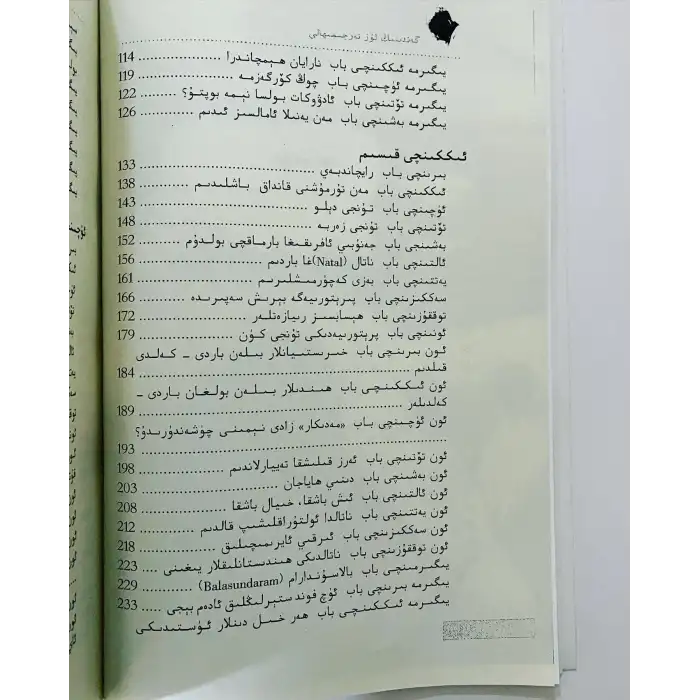 گەندىنىڭ ئۆز تەرجىمىھالى
يىگىرمە ئىككىنچى باب نارايان ھېمچاندرا ........ 114
يىگىرمە ئۈچىنچى باب چوڭ كۆرگەزمە ........ 119
يىگىرمە تۆتىنچى باب ئادۋوكات بولسا نېمە بوپتۇ؟ ........ 122
يىگىرمە بەشىنچى باب مەن يەنىلا ئامالسىز ئىدىم ........ 126
ئىككىنچى قىسىم
بىرىنچى باب رايچاندبەي ........ 133
ئىككىنچى باب مەن تۇرمۇشنى قانداق باشلىدىم ........ 138
ئۈچىنچى باب تۇنجى دېلو ........ 143
تۆتىنچى باب تۇنجى زەربە ........ 148
بەشىنچى باب جەنۇبىي ئافرىقىغا بارماقچى بولدۇم ........ 152
ئالتىنچى باب ناتال (Natal)غا باردىم ........ 156
يەتتىنچى باب بەزى كەچۈرمىشلىرىم ........ 161
سەككىزىنچى باب پىرېتورىيەگە بېرىش سەپىرىدە ........ 166
توققۇزىنچى باب ھېسابسىز رىيازەتلەر ........ 172
ئونىنچى باب پرېتورىيەدىكى تۇنجى كۈن ........ 179
ئون بىرىنچى باب خىرىستىيانلار بىلەن باردى – كەلدى
قىلدىم ........ 184
ئون ئىككىنچى باب ھىندىلار بىلەن بولغان باردى –
كەلدىلەر ........ 189
ئون ئۈچىنچى باب «مەدىكار» زادى نېمىنى چۈشەندۈرىدۇ؟
........ 193
ئون تۆتىنچى باب ئەرز قىلىشقا تەييارلاندىم ........ 198
ئون بەشىنچى باب دىنىي ھاياجان ........ 203
ئون ئالتىنچى باب ئىش باشقا، خىيال باشقا ........ 208
ئون يەتتىنچى باب ناتالدا ئولتۇراقلىشىپ قالدىم ........ 212
ئون سەككىزىنچى باب ئىرقىي ئايرىمىچىلىق ........ 218
ئون توققۇزىنچى باب ناتالدىكى ھىندىستانلىقلار يىغىنى .... 223
يىگىرمىنچى باب بالاسۇندارام (Balasundaram) ........ 229
يىگىرمە بىرىنچى باب ئۈچ فوندستېرلىڭلىق ئادەم بېجى ..... 233
يىگىرمە ئىككىنچى باب ھەر خىل دىنلار ئۈستىدىكى